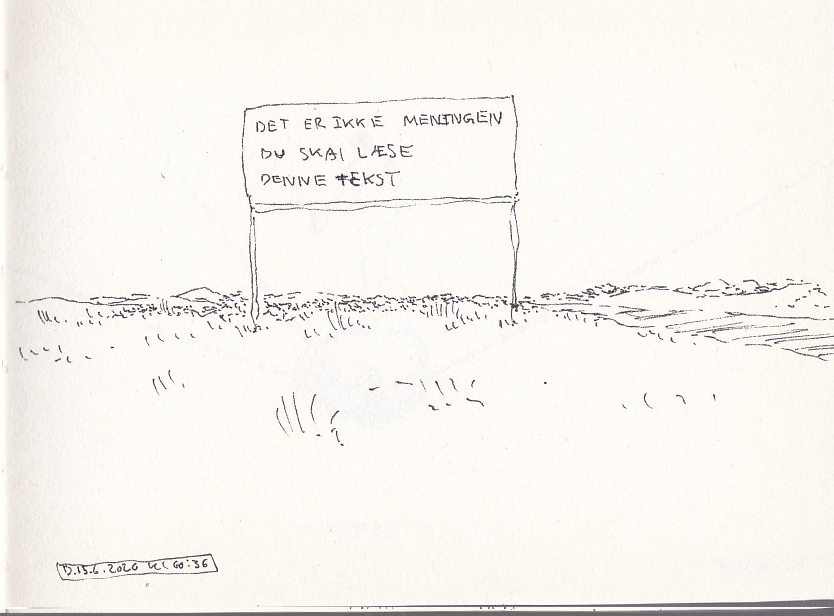 DET ER IKKE MENINGEN
DU SKAL LÆSE
DENNE TEKST
D.15.6.2020 KL